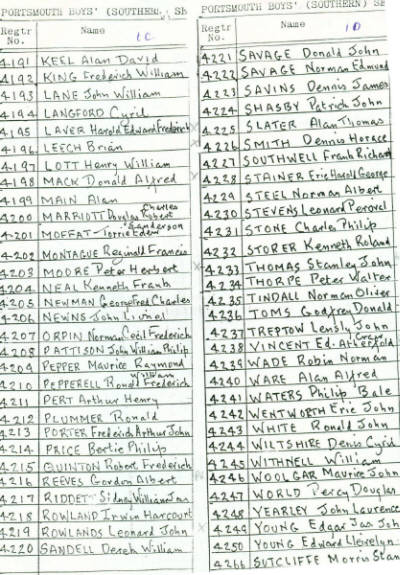 PORTSMOUTH BOYS' (SOUTHERN
Regtr No. Name 1C
4191 KEEL Alan David
4192 KING Frederick William
4193 LANE John William
4194 LANGFORD Cyril
4195 LAVER Harold Edward Frederick
4196 LEECH Brian
4197 LOTT Henry William
4198 MACK Donald Alfred
4199 MAIN Alan
4200 MARRIOTT Douglas Robert Charles
4201 MOFFAT Torrie Eden Sanderson
4202 MONTAGUE Reginald Francis
4203 MOORE Peter Herbert
4204 NEAL Kenneth Frank
4205 NEWMAN George Fred Charles
4206 NEWNS John Lionel
4207 ORPIN Norman Cecil Frederick
4208 PATTISON John William Philip
4209 PEPPER Maurice Raymond
4210 PEPPERELL Ronald Frederick William
4211 PERT Arthur Henry
4212 PLUMMER Ronald
4213 PORTER Frederick Arthur John
4214 PRICE Bertie Philip
4215 QUINTON Robert Frederick
4216 REEVES Gordon Albert
4217 RIDDETT Sidney William Jas
4218 ROWLAND Irwin Harcourt
4219 ROWLANDS Leonard John
4220 SANDELL Derek William
PORTSMOUTH BOYS' (SOUTHERN) SE
Regtr No. Name 1D
4221 SAVAGE Donald John
4222 SAVAGE Norman Edmund
4223 SAVINS Dennis James
4224 SHASBY Patrick John
4225 SLATER Alan Thomas
4226 SMITH Dennis Horace
4227 SOUTHWELL Frank Richard
4228 STAINER Eric Harold George
4229 STEEL Norman Albert
4230 STEVENS Leonard Percival
4231 STONE Charles Philip
4232 STORER Kenneth Roland
4233 THOMAS Stanley John
4234 THORPE Peter Walter
4235 TINDALL Norman Oliver
4236 TOMS Godfrey Donald
4237 TREPTOW Lensly John
4238 VINCENT Ed.
4239 WADE Robin Norman
4240 WARE Alan Alfred
4241 WATERS Philip Bale
4242 WENTWORTH Eric John
4243 WHITE Ronald John
4244 WILTSHIRE Denis Cyril
4245 WITHNELL William
4246 WOOLGAR Maurice John
4247 WORLD Percy Douglas
4248 YEARLEY John Laurence
4249 YOUNG Edgar Jas Joh
4250 YOUNG Edward Llewelyn
4266 SUTCLIFFE Morris Stan